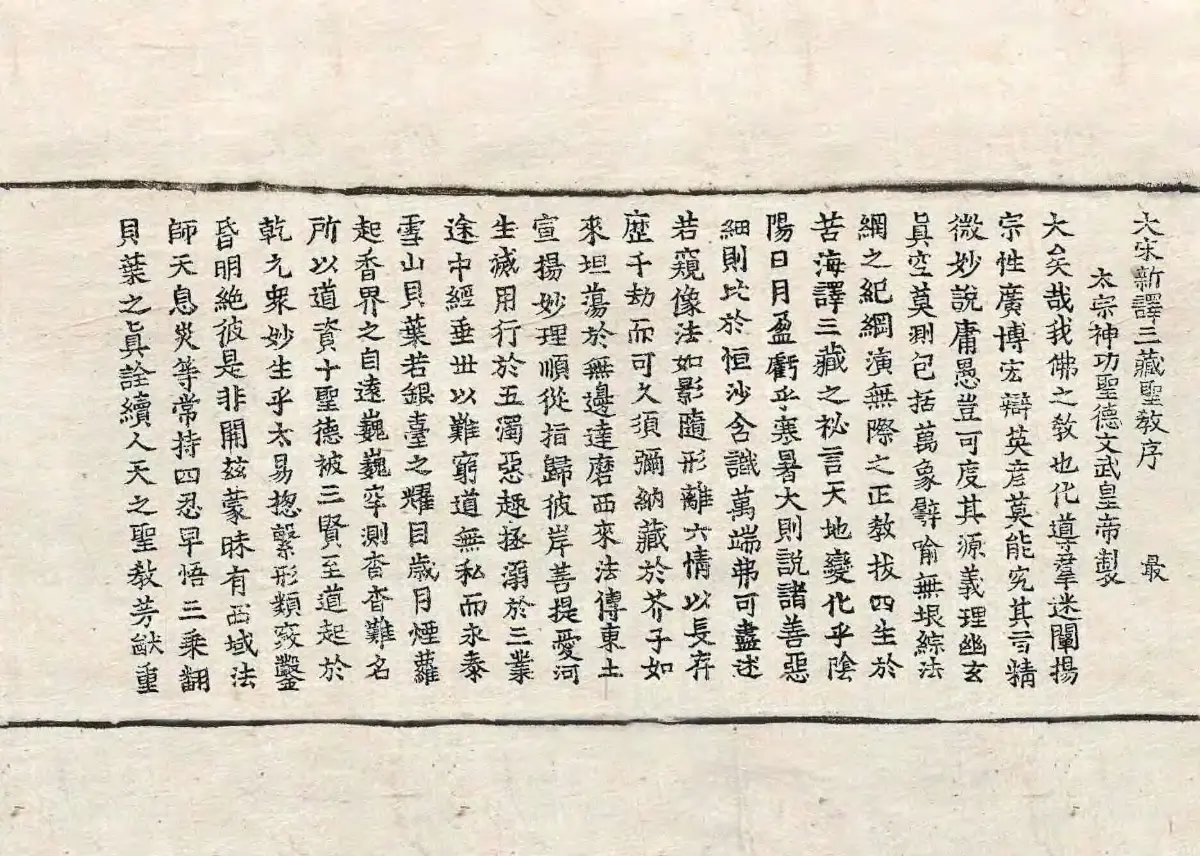 大宋新譯三藏聖教序 最
太宗神功聖德文武皇帝製
大矣哉我佛之教也化導羣迷闡揚
宗性廣博宏辯英彥莫能究其旨精
微妙說庸愚豈可度其源義理幽玄
眞空莫測包括萬象譬喻無垠綜法
網之紀綱演無際之正教拔四生於
苦海譯三藏之祕言天地變化乎陰
陽日月盈虧乎寒暑大則說諸善惡
細則比於恒沙含識萬端弗可盡述
若窺像法如影隨形離六情以長存
歷千劫而可久須彌納藏於芥子如
來坦蕩於無邊達磨西來法傳東土
宣揚妙理順從指歸彼岸菩提愛河
生滅用行於五濁惡趣拯溺於三業
途中經垂世以難窮道無私而永泰
雪山貝葉若銀臺之耀目歲月煙蘿
起香界之自遠巍巍罕測杳杳難名
所以道資十聖德被三賢至道起於
乾元衆妙生乎太易揔繫形類竅鑿
昏明絕彼是非開玆蒙昧有西域法
師天息灾等常持四忍早悟三乘翻
貝葉之眞詮續人天之聖教芳猷重